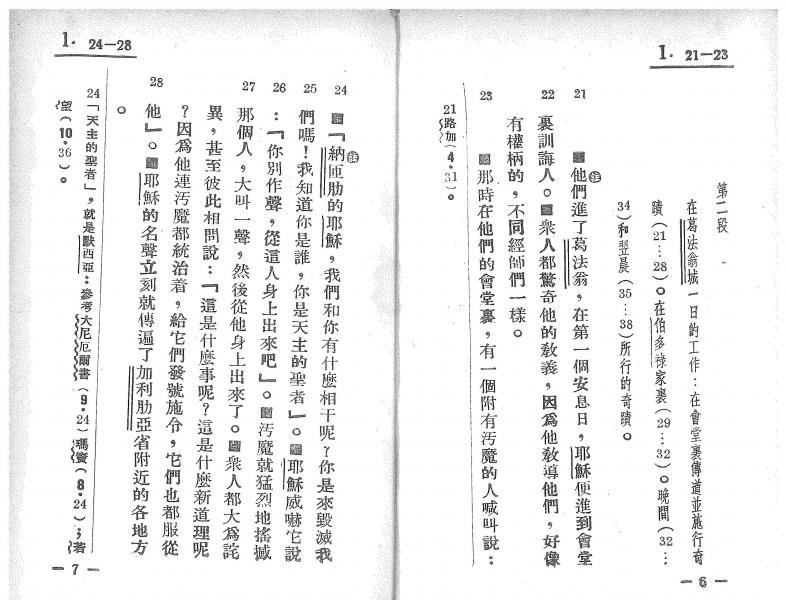 I. 21—23
第二段
在葛法翁城一日的工作：在會堂裏傳道並施行奇
蹟（21…28）。在伯多祿家裏（29…32）。晚間（32…
34）和翌晨（35…38）所行的奇蹟。
21 註他們進了葛法翁，在第一個安息日，耶穌便進到會堂
22 裏訓誨人。衆人都驚奇他的教義，因爲他教導他們，好像
有權柄的，不同經師們一樣。
23 那時在他們的會堂裏，有一個附有汚魔的人喊叫說：
21路加（4.31）。
— 6 —
1. 24—28
24 註「納匝肋的耶穌，我們和你有什麼相干呢？你是來毀滅我
25 們嗎！我知道你是誰，你是天主的聖者」。耶穌威嚇它說
26 ：「你別作聲，從這人身上出來吧」。汚魔就猛烈地搖撼
27 那個人，大叫一聲，然後從他身上出來了。衆人都大爲詫
異，甚至彼此相問說：「這是什麼事呢？這是什麼新道理呢
？因爲他連汚魔都統治着，給它們發號施令，它們也都服從
28 他」。耶穌的名聲立刻就傳遍了加利肋亞省附近的各地方
。
24「天主的聖者」，就是默西亞：參考大尼厄爾書（9.24）瑪竇（8.24）；若
望（10.36）。
— 7 —